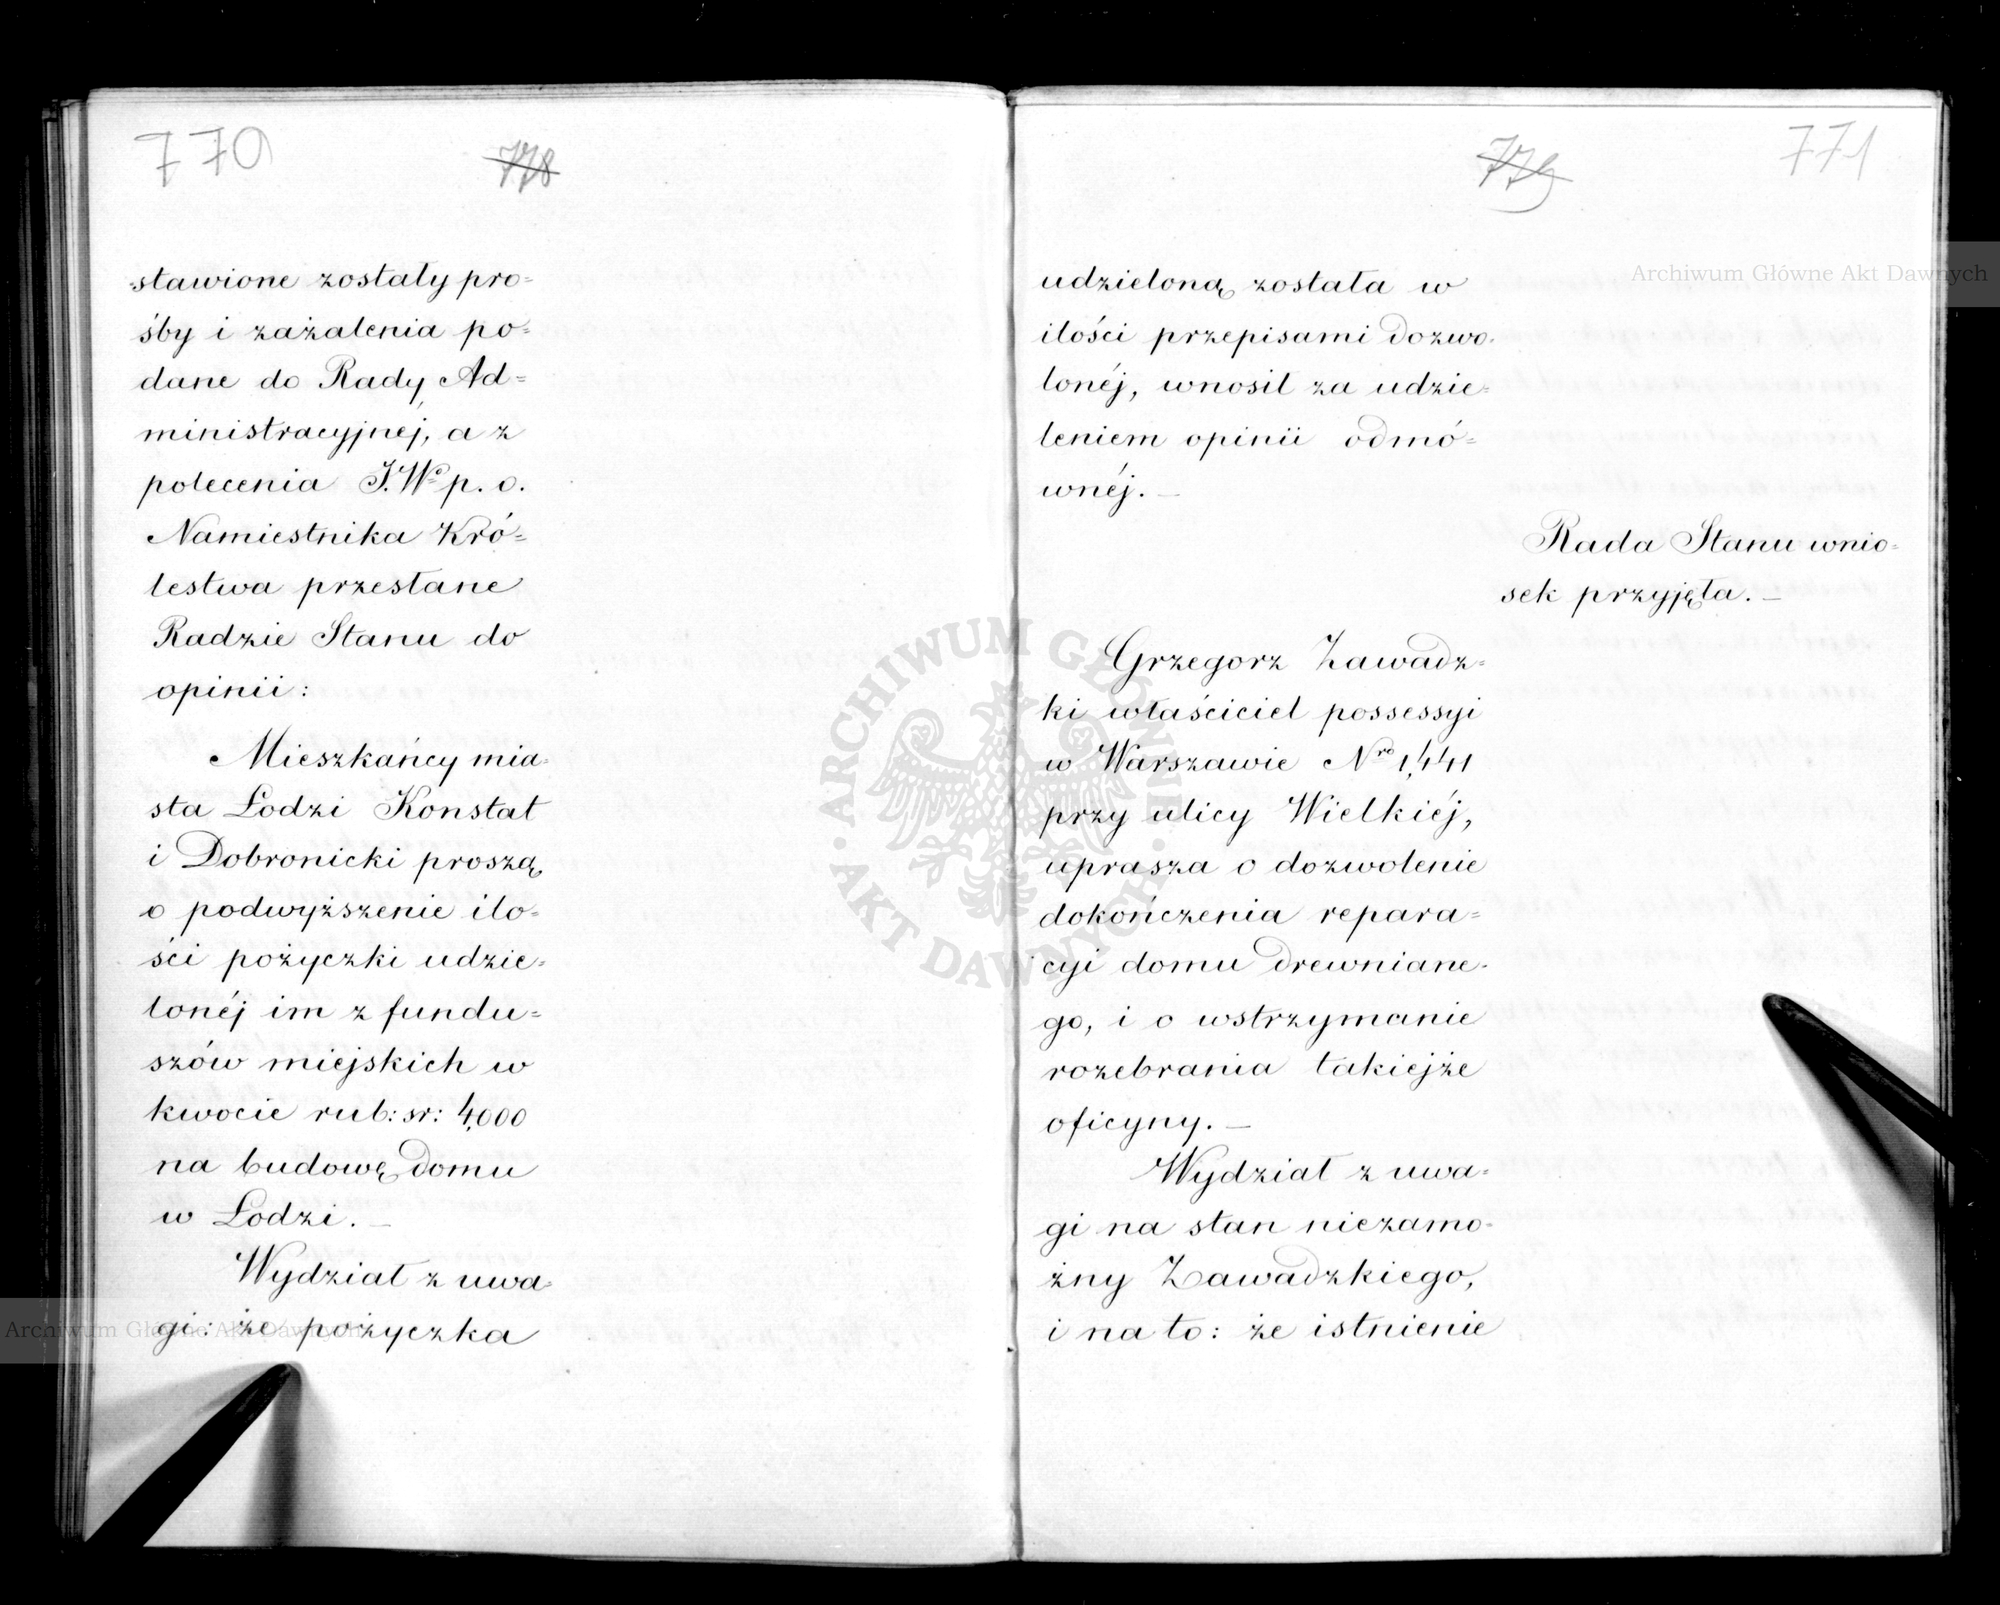 770
778
stawione zostały pro=
śby i zażalenia po=
dane do Rady Ad=
ministracyjnéj, a z
polecenia J.Wo p. o.
Namiestnika Kró=
lestwa przesłane
Radzie Stanu do
opinii:
Mieszkańcy mia=
sta Łodzi Konstat
i Dobronicki proszą
o podwyższenie ilo=
ści pożyczki udzie=
lonéj im z fundu=
szów miejskich w
kwocie rub: sr: 4,000
na budowę domu
w Łodzi. —
Wydział z uwa=
gi: że pożyczka
779
771
udzieloną została w
ilości przepisami dozwo=
lonéj, wnosił za udzie=
leniem opinii odmó=
wnéj. —
Rada Stanu wnio=
sek przyjęła. —
Grzegorz Zawadz=
ki właściciel possessyi
w Warszawie Nro 1,441
przy ulicy Wielkiéj,
uprasza o dozwolenie
dokończenia repara=
cyi domu drewniane=
go, i o wstrzymanie
rozebrania takiejże
oficyny. —
Wydział z uwa=
gi na stan niezamo=
żny Zawadzkiego,
i na to: że istnienie
Archiwum Główne Akt Dawnych
Archiwum Główne Akt Dawnych
ARCHIWUM GŁÓWNE
AKT DAWNYCH